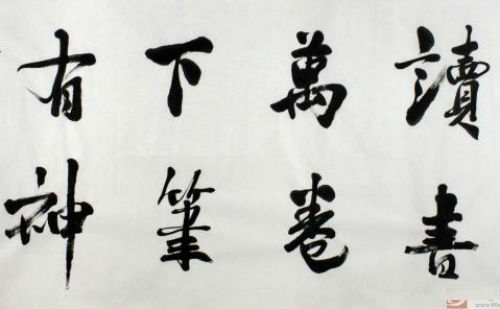 讀書
萬卷
下筆
有神